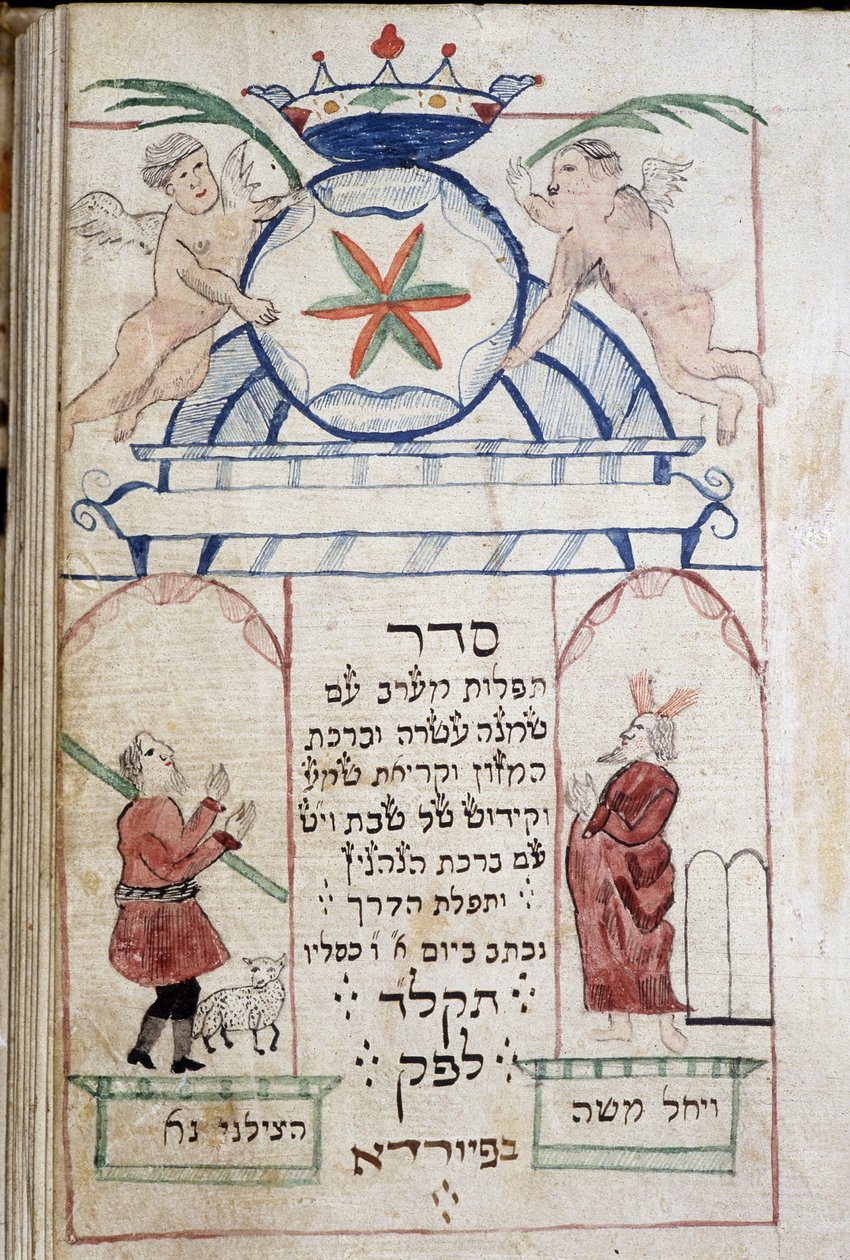 סדר
תפלות מערב עם
שמנה עשרה וברכת
המזון וקריאת שמע
וקידוש של שבת וי״ט
עם ברכת הנהנין
ותפלת הדרך
נכתב ביום א״ ו״ כסליו
תקל״ד
לפק
ויחל משה
הצילני נא
בפיורדא